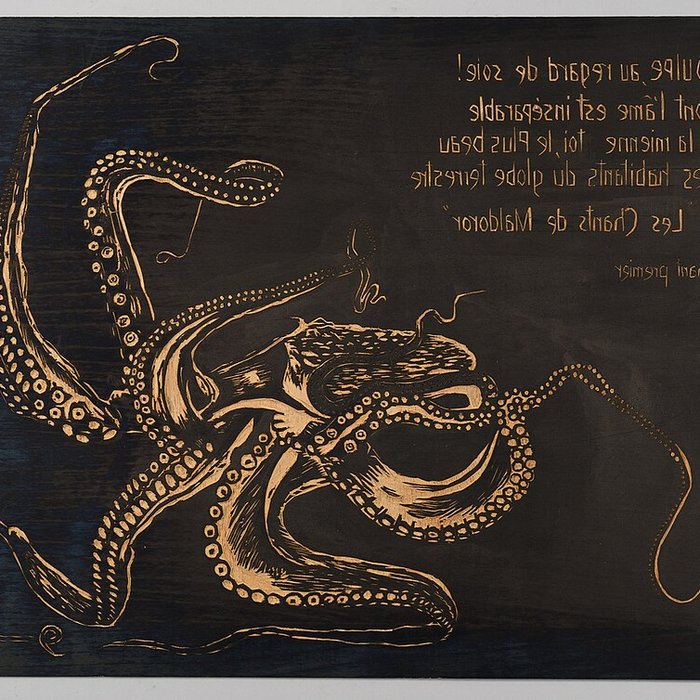 oulpe au regard de soie!
ont l'âme est inséparable
la mienne, toi, le Plus beau
es habitants du globe terrestre
Les Chants de Maldoror"
hant premier